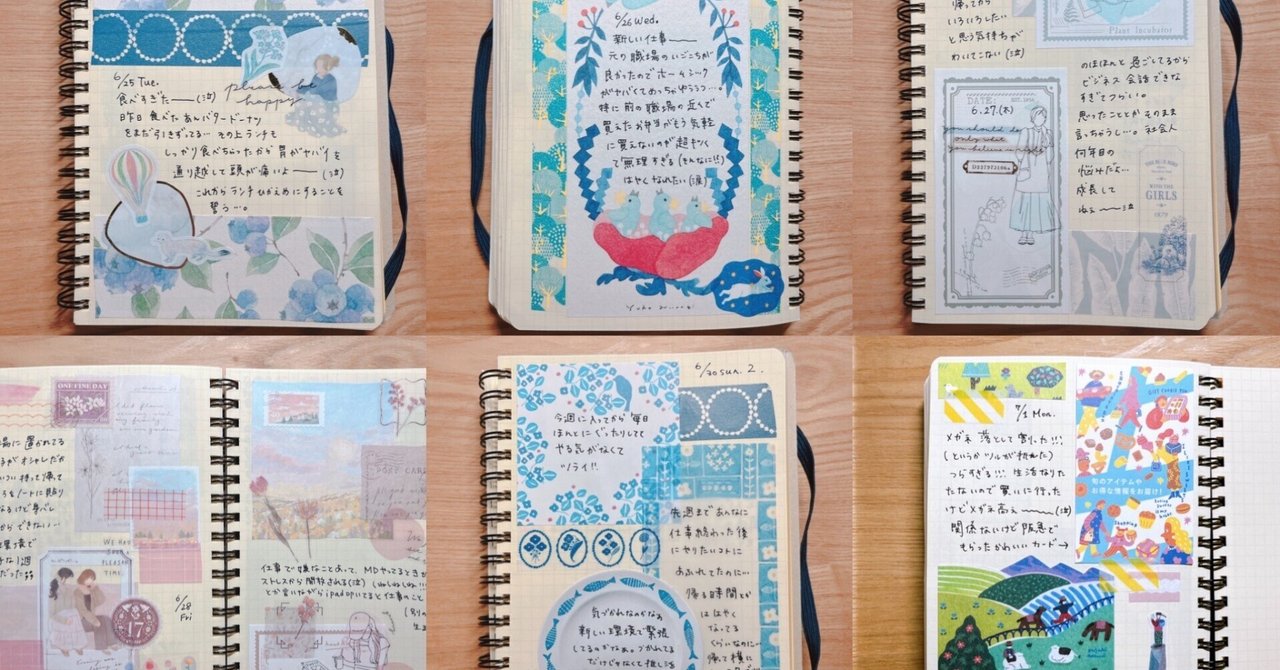 6/25 Tue.
食べすぎた——(泣)
昨日食べたあんバタードーナツ
をまだ引きずってる…その上ランチも
しっかり食べちゃったから胃がヤバイを
通り越して頭が痛いよ——(泣)
これからランチひかえめにすることを
誓う…。
please be
happy
6/26 Wed.
新しい仕事——
元の職場のいごこちが
良かったのでホームシック
がヤバくてめっちゃゆううつ…。
特に前の職場の近くで
買えたお弁当がもう気軽
に買えないのが超キツく
て無理すぎる(そんなに!!)
はやくなれたい(涙)
帰ってから
いろいろしたい
と思う気持ちが
わいてこない(泣)
Plant Incubator
DATE:
6.27.(木)
you should do
only what
you believe is right
のほほんと過ごしてるから
ビジネス会話できな
すぎてつらい。
思ったことがそのまま
言っちゃうし…。社会人
何年目の
悩みだよ…
成長して
WITH THE
GIRLS
1879
ONE FINE DAY
場に置かれてる
るがオシャレだか
つい持って帰て
からできない…
だった
WE HAD
PLEASANT
TIME
17
6/28
Fri
POST CARD
仕事で嫌なことあって、MDやってるときが
ストレスから開放される(泣)
とか言いながらipadopにいると仕事のこと
6/30 sun. 2.
今週に入ってから毎日
ほんとにぐったりしてて
やる気がなくて
ツライ!!
先週まであんなに
仕事終わった後
にやりたいコトに
あふれてたのに…
帰る時間とか
ははやく
なってる
くらいなのに…
気づかれなのかなぁ
新しい環境で緊張
してるのかなぁ。つかれてる
だけじゃなくて推し活
7/1 Mon.
メガネ落として割った!!!
(というかツルが折れた)
つらすぎる!!! 生活なりた
たないので買いに行った
けどメガネ高ぇ——(泣)
関係ないけど阪急で
もらったかわいいカード→
旬のアイテムや
お得な情報をお届け!